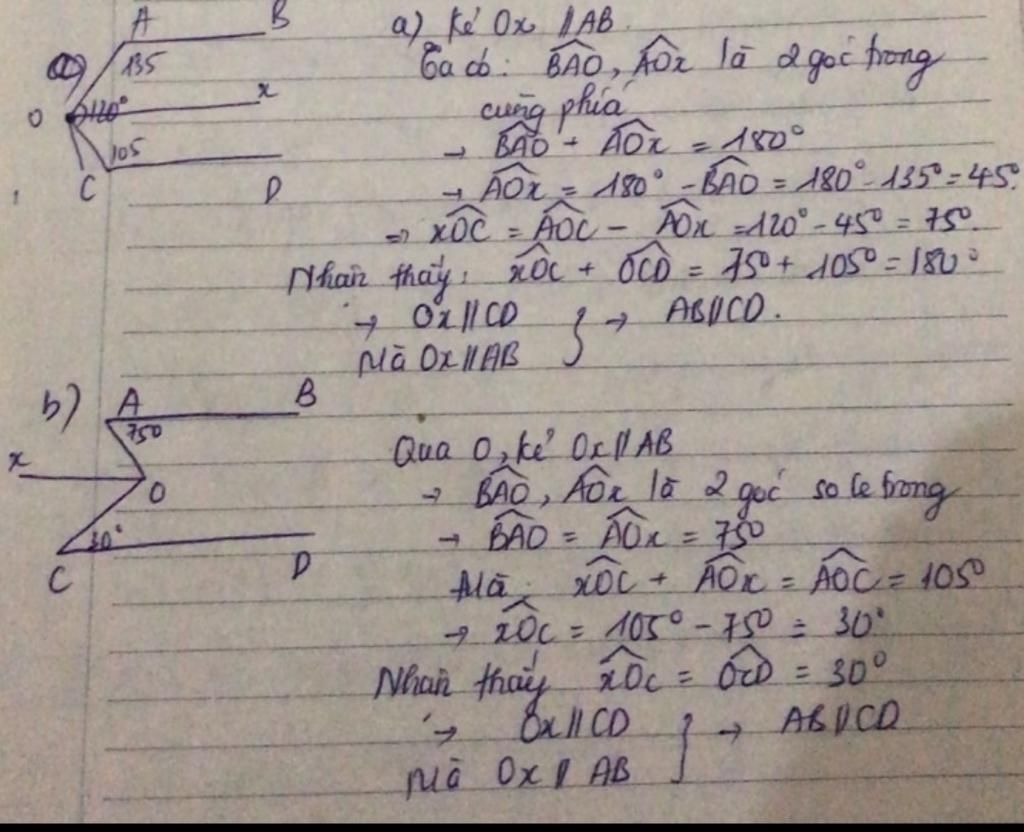 a)
A B
135
O 120° x
105
C D
a) Kẻ Ox // AB.
Ta có: BAO, AOx là 2 góc trong
cùng phía
→ BAO + AOx = 180°
→ AOx = 180° - BAO = 180° - 135° = 45°.
⇒ xOC = AOC - AOx = 120° - 45° = 75°.
Nhận thấy: xOC + OCD = 75° + 105° = 180°
→ Ox // CD } → AB // CD.
Mà Ox // AB
b) A B
75°
x O
30°
C D
Qua O, kẻ Ox // AB
→ BAO, AOx là 2 góc so le trong
→ BAO = AOx = 75°
Mà: xOC + AOx = AOC = 105°
→ xOC = 105° - 75° = 30°
Nhận thấy xOC = OCD = 30°
→ Ox // CD } → AB // CD
Mà Ox // AB